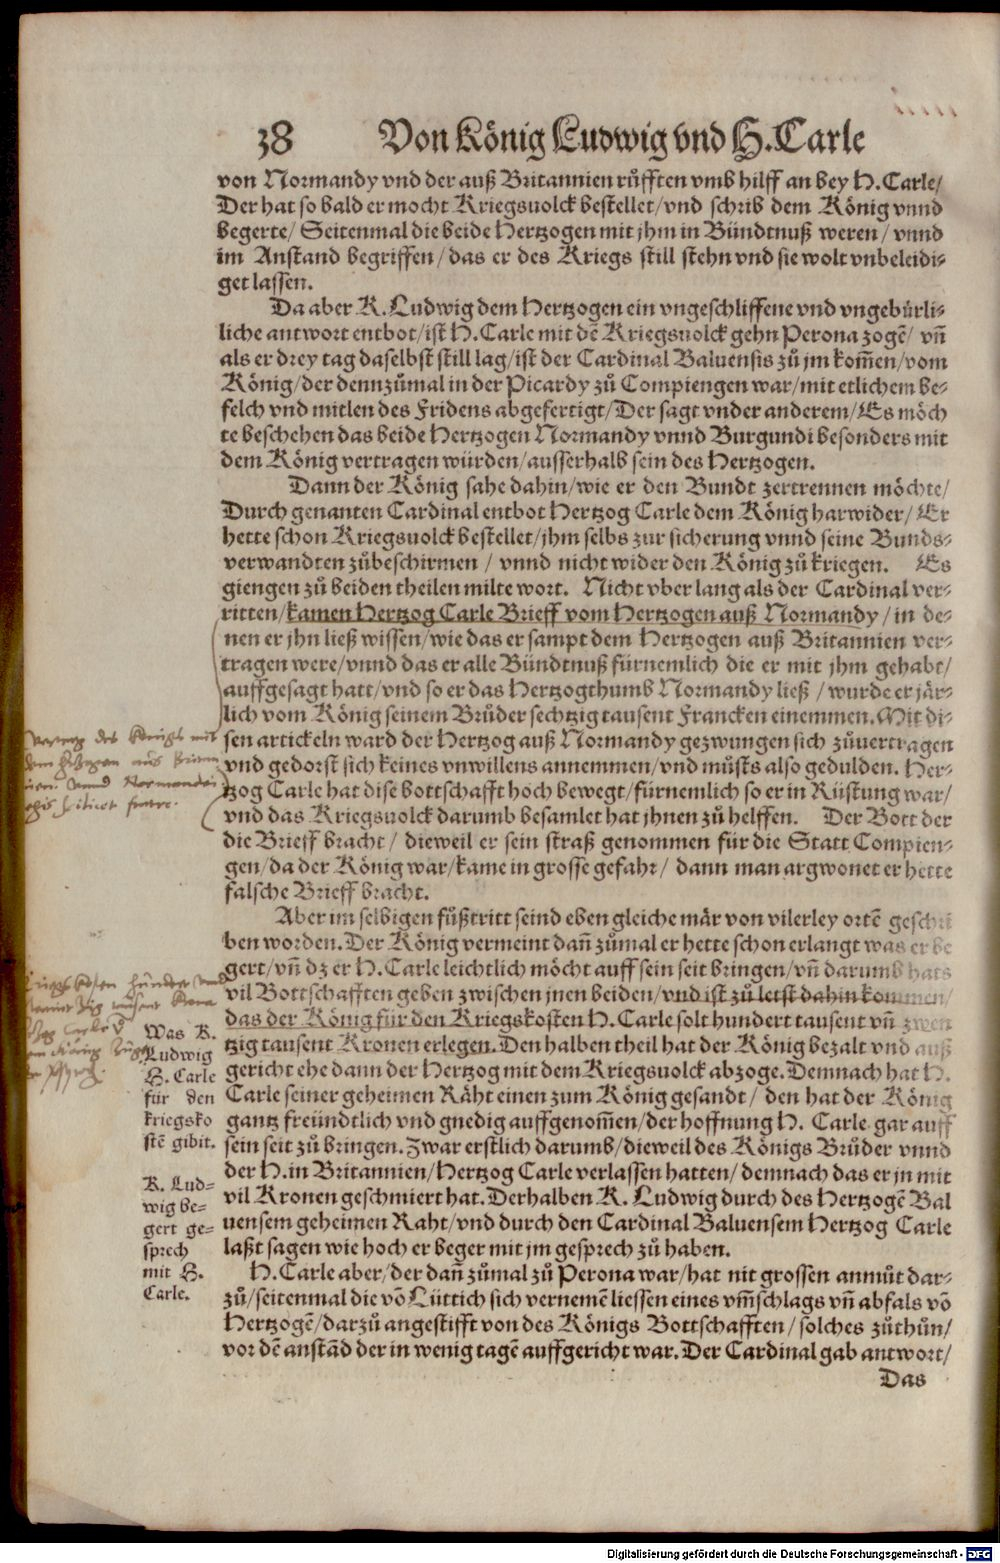 38 Von König Ludwig vnd H. Carle
von Normandy vnd der auß Britannien růfften vmb hilff an bey H. Carle/
Der hat so bald er mocht Kriegsuolck bestellet/vnd schrib dem König vnnd
begerte/ Seitenmal die beide Hertzogen mit jhm in Bündtnuß weren/ vnnd
im Anstand begriffen/das er des Kriegs still stehn vnd sie wolt vnbeleidi-
get lassen.
Da aber K. Ludwig dem Hertzogen ein vngeschliffene vnd vngebürli-
liche antwort entbot/ist H. Carle mit dē Kriegsuolck gehn Perona zogē/ vñ
als er drey tag daselbst still lag/ist der Cardinal Baluensis zů jm kom̃en/vom
König/der dennzůmal in der Picardy zů Compiengen war/mit etlichem be-
felch vnd mitlen des Fridens abgefertigt/Der sagt vnder anderem/Es möch
te beschehen das beide Hertzogen Normandy vnnd Burgundi besonders mit
dem König vertragen würden/ausserhalb sein des Hertzogen.
Dann der König sahe dahin/wie er den Bundt zertrennen möchte/
Durch genanten Cardinal entbot Hertzog Carle dem König harwider/ Er
hette schon Kriegsuolck bestellet/jhm selbs zur sicherung vnnd seine Bunds-
verwandten zůbeschirmen / vnnd nicht wider den König zů kriegen. Es
giengen zů beiden theilen milte wort. Nicht vber lang als der Cardinal ver-
ritten/kamen Hertzog Carle Brieff vom Hertzogen auß Normandy/in de-
nen er jhn ließ wissen/wie das er sampt dem Hertzogen auß Britannien ver-
tragen were/vnnd das er alle Bündtnuß fürnemlich die er mit jhm gehabt/
auffgesagt hatt/vnd so er das Hertzogthumb Normandy ließ /wurde er jär-
lich vom König seinem Brůder sechtzig tausent Francken einemmen. Mit di-
sen artickeln ward der Hertzog auß Normandy gezwungen sich zůuertragen
vnd gedorst sich keines vnwillens annemmen/vnd můsts also gedulden. Her-
tzog Carle hat dise bottschafft hoch bewegt/fürnemlich so er in Rüstung war/
vnd das Kriegsuolck darumb besamlet hat jhnen zů helffen. Der Bott der
die Brieff bracht/ dieweil er sein straß genommen für die Statt Compien-
gen/da der König war/kame in grosse gefahr/ dann man argwonet er hette
falsche Brieff bracht.
Aber im selbigen fůßtritt seind eben gleiche mär von vilerley ortē geschri
ben worden. Der König vermeint dañ zůmal er hette schon erlangt was er be
gert/vñ dz er H. Carle leichtlich möcht auff sein seit bringen/vñ darumb hats
vil Bottschafften geben zwischen jnen beiden/vnd ist zů letst dahin kommen/
das der König für den Kriegskosten H. Carle solt hundert tausent vñ zwen
tzig tausent Kronen erlegen. Den halben theil hat der König bezalt vnd auß
gericht ehe dann der Hertzog mit dem Kriegsuolck abzoge. Demnach hat H.
Carle seiner geheimen Räht einen zum König gesandt/ den hat der König
gantz freündtlich vnd gnedig auffgenom̃en/der hoffnung H. Carle gar auff
sein seit zů bringen. Zwar erstlich darumb/dieweil des Königs Brůder vnnd
der H. in Britannien/Hertzog Carle verlassen hatten/demnach das er jn mit
vil Kronen geschmiert hat. Derhalben K. Ludwig durch des Hertzogē Bal
uensem geheimen Raht/vnd durch den Cardinal Baluensem Hertzog Carle
laßt sagen wie hoch er beger mit jm gesprech zů haben.
H. Carle aber/der dañ zůmal zů Perona war/hat nit grossen anmůt dar-
zů/seitenmal die vō Lüttich sich vernemē liessen eines vm̃schlags vñ abfals vō
Hertzogē/darzů angestifft von des Königs Bottschafften/solches zůthůn/
vor dē anstād der in wenig tagē auffgericht war. Der Cardinal gab antwort/
Das
des Königs mit
dem
Was K.
Ludwig
H. Carle
für den
kriegsko
stē gibit.
K. Lud-
wig be-
gert ge-
sprech
mit H.
Carle.
Digitalisierung gefördert durch die Deutsche Forschungsgemeinschaft - DFG